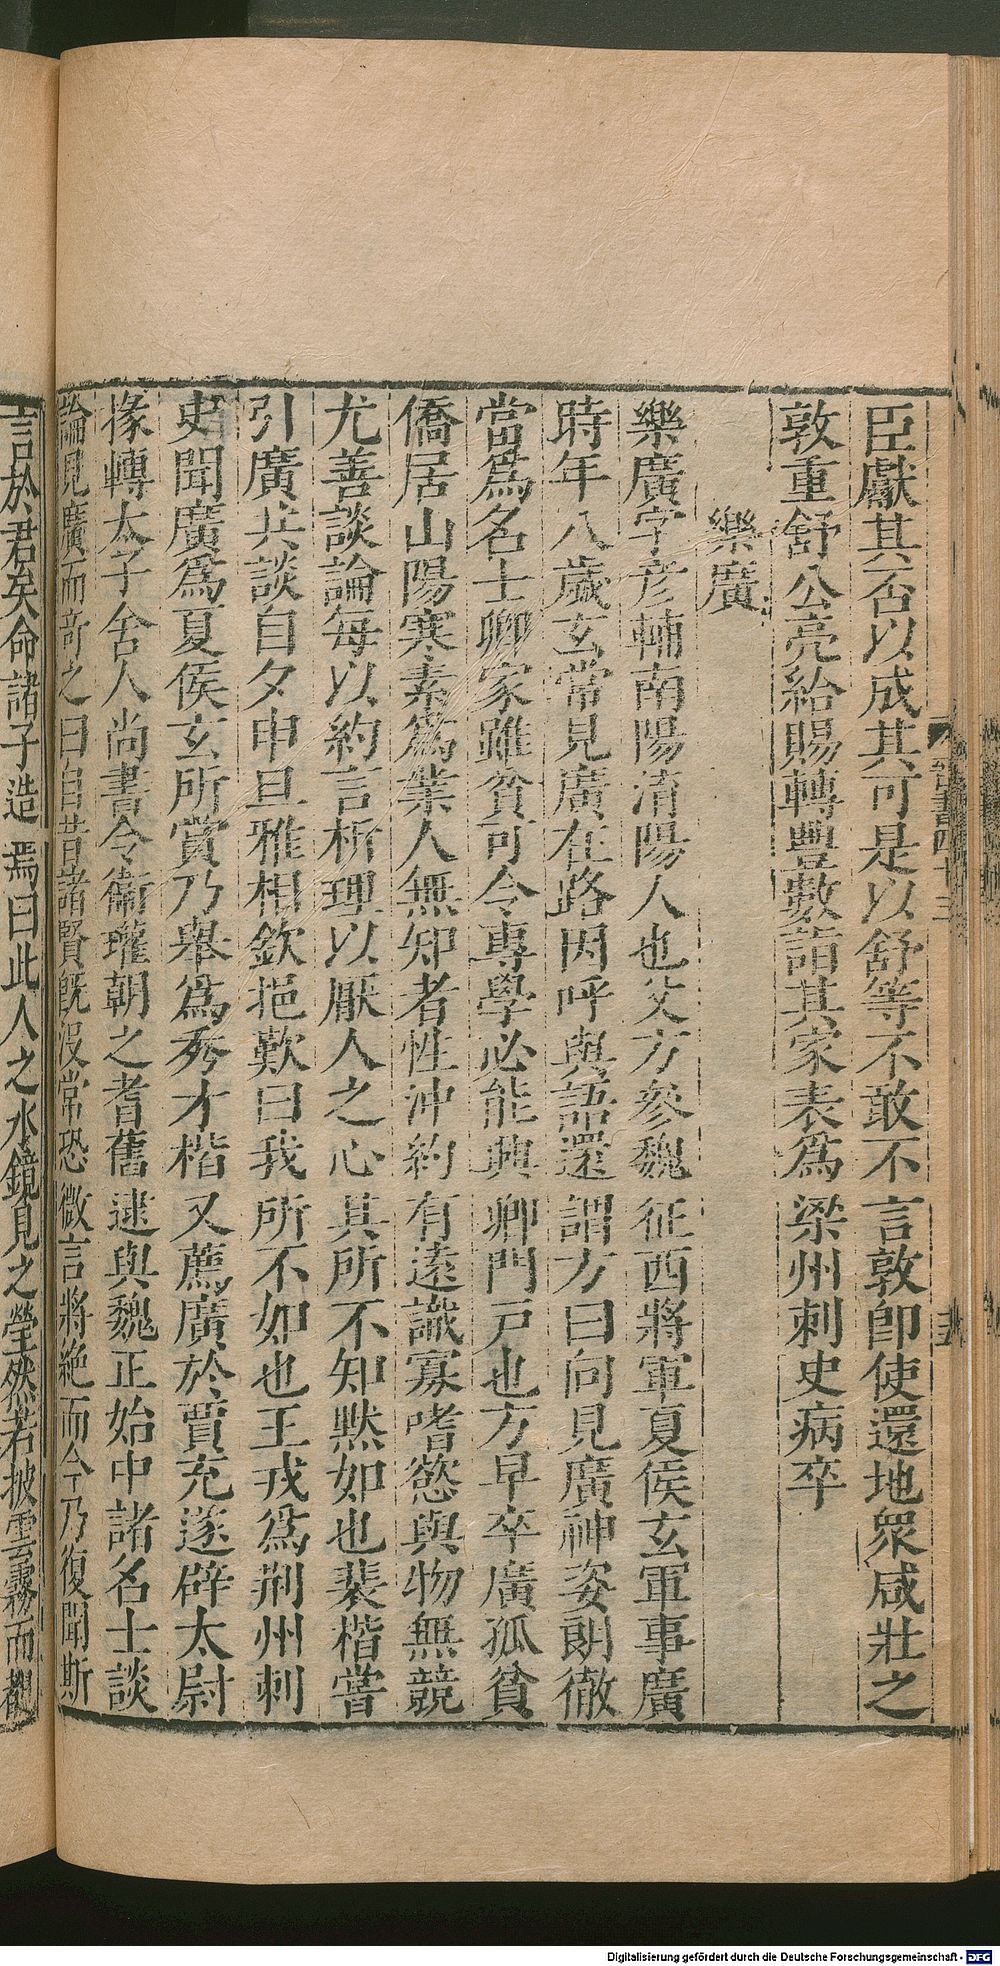 臣獻其否以成其可是以舒等不敢不言敦即使還地衆咸壯之
敦重舒公亮給賜轉豐數詣其家表爲梁州刺史病卒
樂廣
樂廣字彦輔南陽淯陽人也父方參魏征西將軍夏侯玄軍事廣
時年八歲玄常見廣在路因呼與語還謂方曰向見廣神姿朗徹
當爲名士卿家雖貧可令專學必能興卿門戸也方早卒廣孤貧
僑居山陽寒素爲業人無知者性沖約有遠識寡嗜慾與物無競
尤善談論每以約言析理以厭人之心其所不知黙如也裴楷嘗
引廣共談自夕申旦雅相欽挹歎曰我所不如也王戎爲荆州刺
史聞廣爲夏侯玄所賞乃舉爲秀才楷又薦廣於賈充遂辟太尉
掾轉太子舍人尚書令衞瓘朝之耆舊逮與魏正始中諸名士談
論見廣而奇之曰自昔諸賢旣沒常恐微言將絶而今乃復聞斯
言於君矣命諸子造焉曰此人之水鏡見之瑩然若披雲霧而覩
晉書四十三
Digitalisierung gefördert durch die Deutsche Forschungsgemeinschaft - DFG